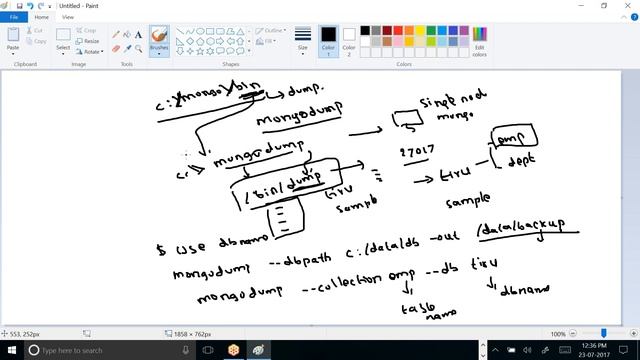 Untitled - Paint
File Home View
Paste
Cut
Copy
Select
Crop
Resize
Rotate
Brushes
Outline
Fill
Size
Color 1
Color 2
Edit colors
Clipboard Image Tools Shapes Colors
c:\mongo\bin
dump.
mongodump
single node
mongo
mongodump
c:\>
27017
emp
dept
/bin/dump
tiru
tiru
sample
sample
$ use dbname
mongodump --dbpath c:/data/db -out /data/backup
mongodump --collection emp --db tiru
table name
dbname
553, 252px
1858 × 762px
100%
Type here to search
12:36 PM
23-07-2017